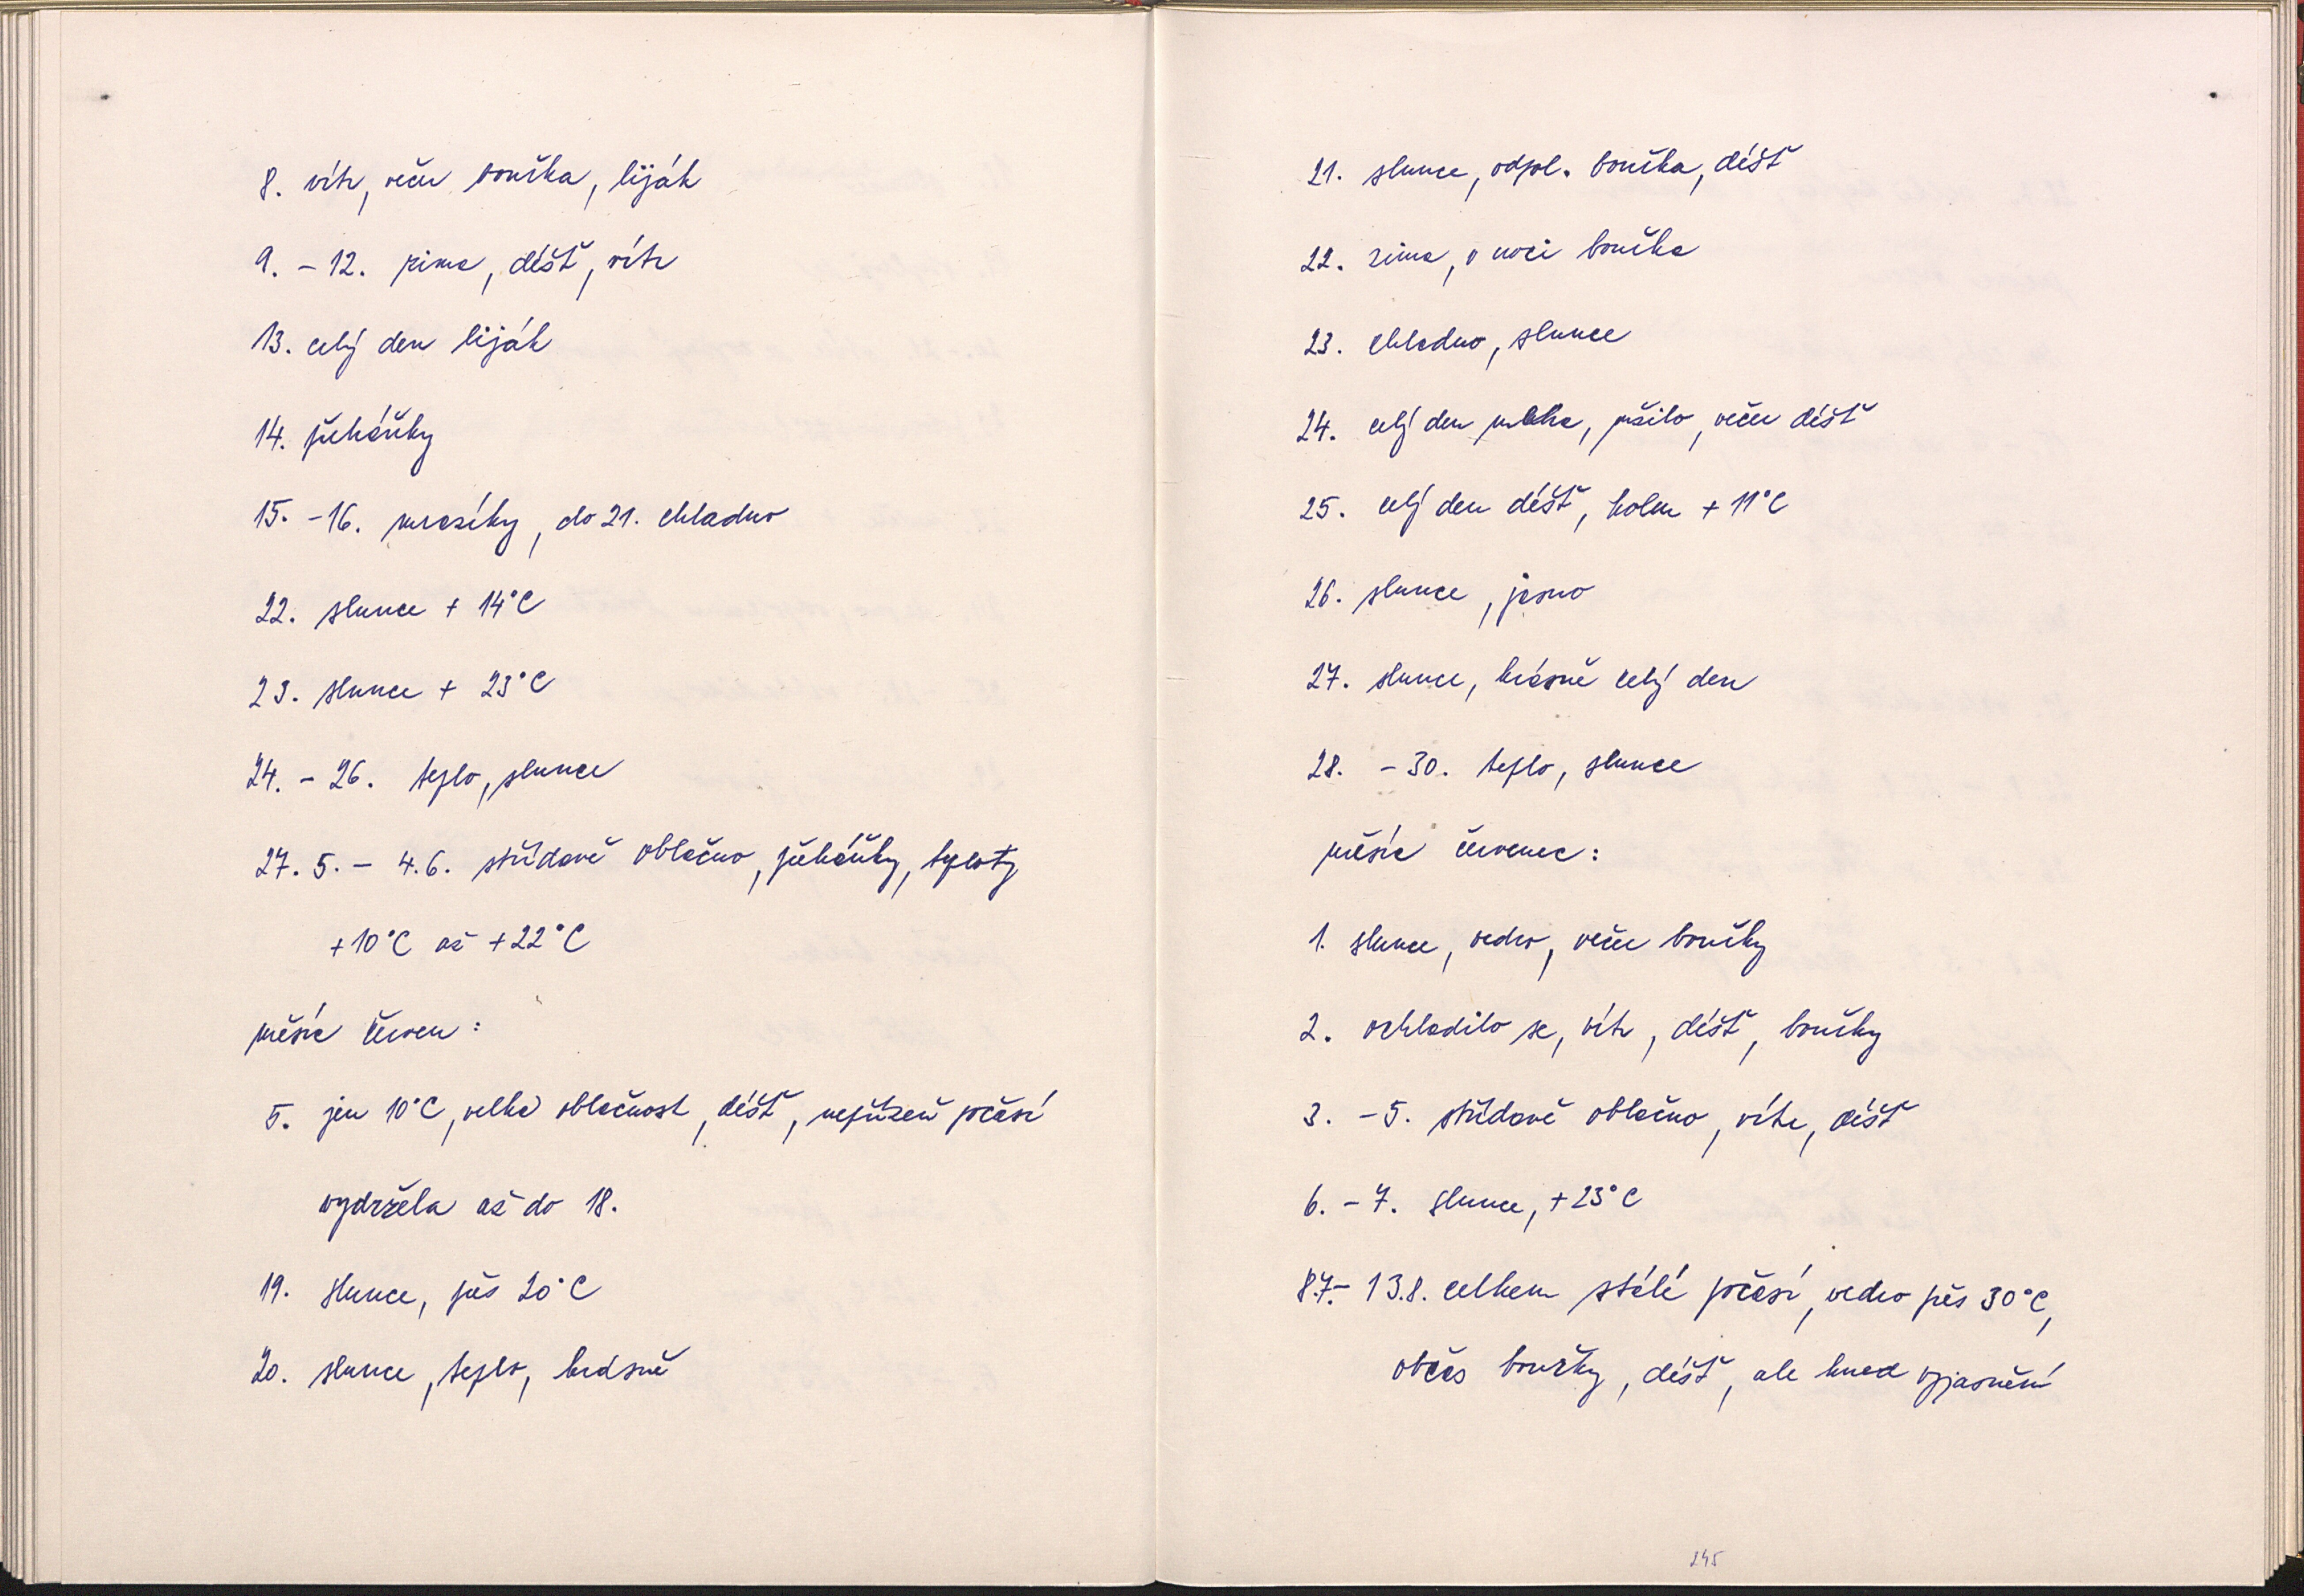 8. vítr, večer bouřka, liják
9. - 12. zima, déšť, vítr
13. celý den liják
14. přeháňky
15. - 16. mrazíky, do 21. chladno
22. slunce + 14°C
23. slunce + 23°C
24. - 26. teplo, slunce
27. 5. - 4. 6. střídavě oblačno, přeháňky, teploty
+10°C až +22°C
měsíc červen:
5. jen 10°C, velká oblačnost, déšť, nepřízeň počasí
vydržela až do 18.
19. slunce, přes 20°C
20. slunce, teplo, krásně
21. slunce, odpol. bouřka, déšť
22. zima, v noci bouřka
23. chladno, slunce
24. celý den mlha, mžilo, večer déšť
25. celý den déšť, kolem + 11°C
26. slunce, jasno
27. slunce, krásně celý den
28. - 30. teplo, slunce
měsíc červenec:
1. slunce, vedro, večer bouřky
2. ochladilo se, vítr, déšť, bouřky
3. - 5. střídavě oblačno, vítr, déšť
6. - 7. slunce, +23°C
8.7.- 13.8. celkem stálé počasí, vedro přes 30°C,
občas bouřky, déšť, ale hned vyjasnění
245